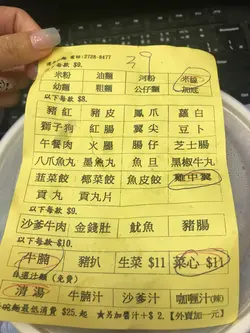 電:2728-8477
39
選一款$9.
米粉 油麵 河粉 米線
幼麵 粗麵 公仔麵 加底
以下每款 $8.
豬紅 豬皮 鳳爪 蘿白
獅子狗 紅腸 翼尖 豆卜
午餐肉 火腿 腸仔 芝士腸
八爪魚丸 墨魚丸 魚旦 黑椒牛丸
韮菜餃 椰菜餃 魚皮餃 雞中翼
貢丸 貢丸片
以下每款 $9.
沙爹牛肉 金錢肚 魷魚 豬腸
以下每款 $10.
牛腩 豬扒 生菜 $11 菜心 $11
自選汁類 (免費)
清湯 牛腩汁 沙爹汁 咖喱汁(辣)
碗麵最低消費 $25.起 ★另加醬汁+$2.【外賣加一元】